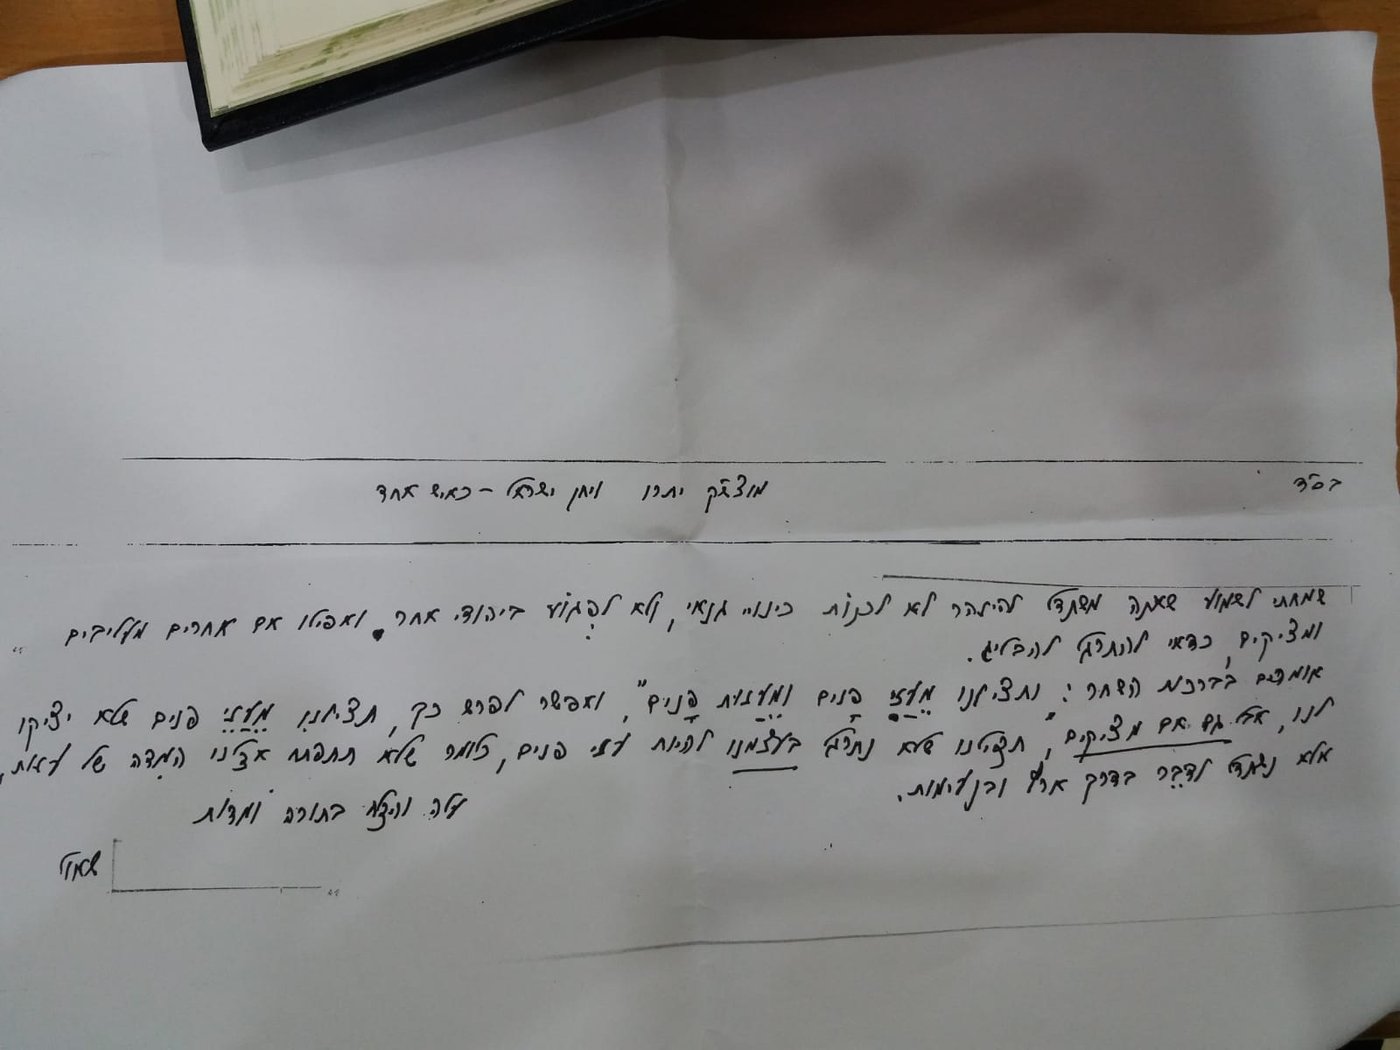 בס"ד
מוצש"ק יתרו ויחן ישראל - כאיש אחד
שמחתי לשמוע שאתה משתדל להיזהר לא לכנות כינויי גנאי, ולא לפגוע ביהודי אחר. ואפילו אם אחרים מעליבים
ומציקים, כדאי להתרגל להבליג.
אומרים בברכות השחר: "ותצילנו מֵעַזֵי פָנים ומֵעַזות פָנים", ואפשר לפרש כך, תצילנו מֵעַזֵי פנים שלא יציקו
לנו, אבל גם אם מציקים, תצילנו שלא נתרגל בעצמנו להיות עזי פנים, כלומר שלא תתפתח אצלנו המדה של עזות,
אלא נשתדל לדַבֵּר בדרך ארץ ובנעימות.
עלה והצלח בתורה ומדות
שמואל